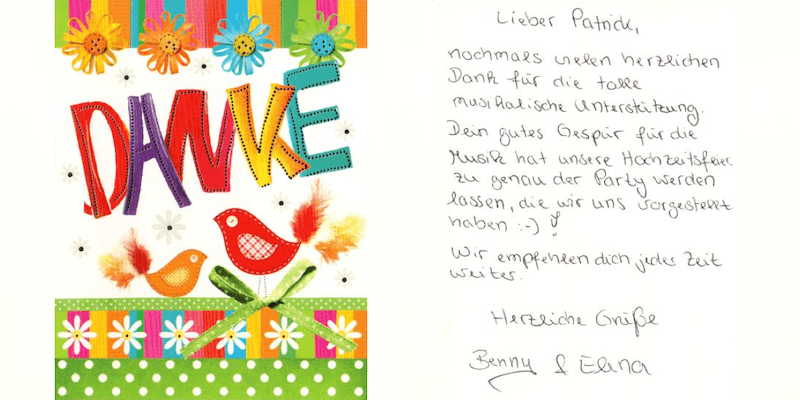 DANKE
Lieber Patrick,
nochmals vielen herzlichen
Dank für die tolle
musikalische Unterstützung.
Dein gutes Gespür für die
Musik hat unsere Hochzeitsfeier
zu genau der Party werden
lassen, die wir uns vorgestellt
haben :-) !
Wir empfehlen dich jeder Zeit
weiter.
Herzliche Grüße
Benny & Elena